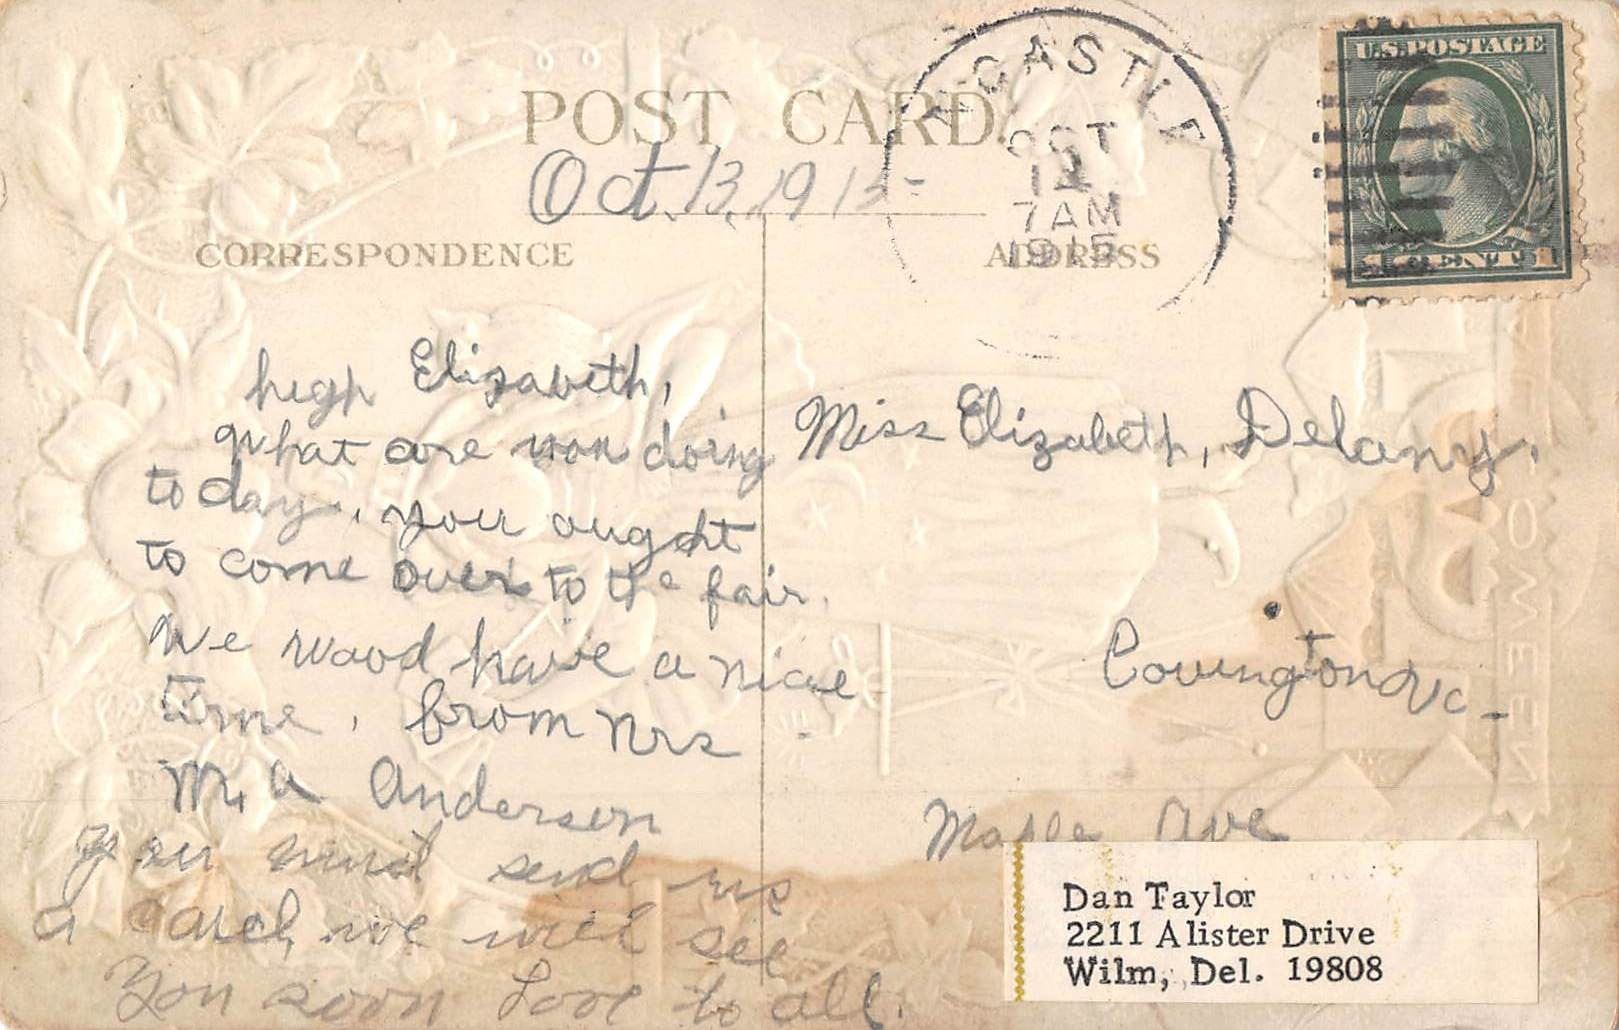 POST CARD
Oct. 13, 1915-
N.CASTLE
OCT
7AM
1915
U.S. POSTAGE
1 CENT 1
CORRESPONDENCE
ADDRESS
high Elizabeth,
What are you doing
to day, you aught
to come over to the fair.
We wood have a nice
time, from Mrs
M, A Anderson
You must send us
a card, we will see
You soon Love to all.
Miss Elizabeth, Delany,
Covington Va-
Maple Ave
Dan Taylor
2211 Alister Drive
Wilm, Del. 19808